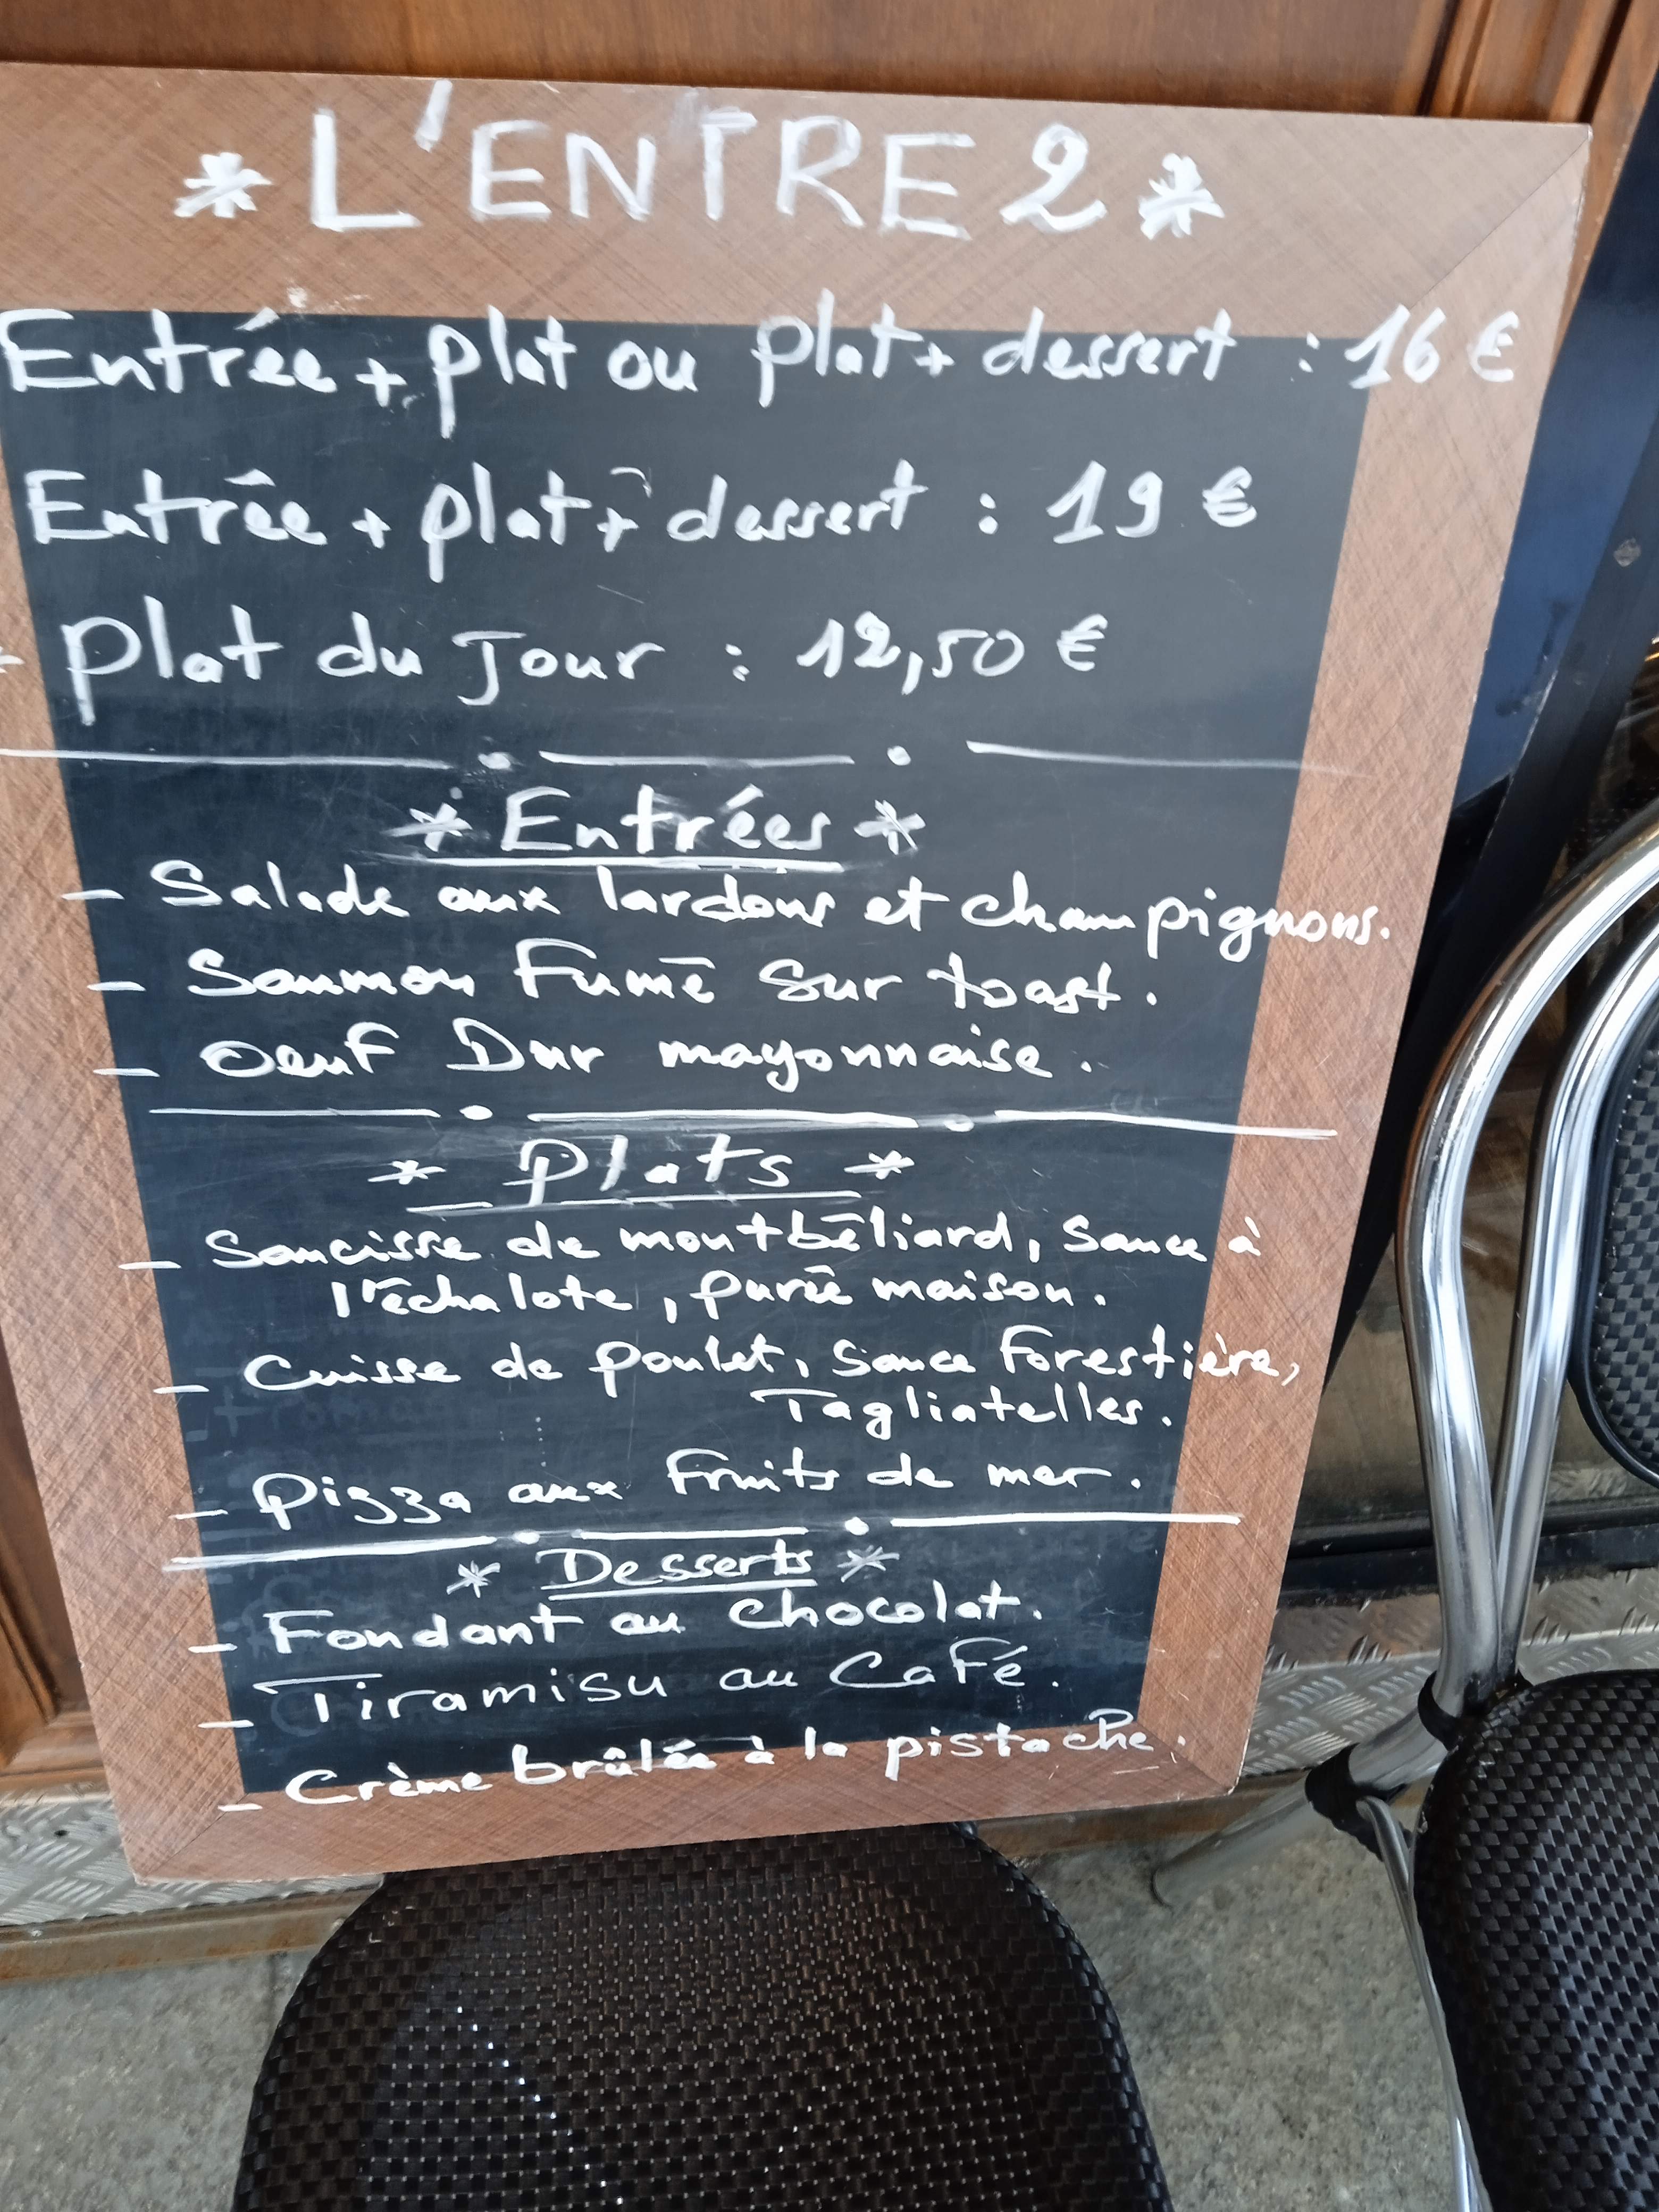 * L'ENTRE 2 *
Entrée + plat ou plat + dessert : 16 €
Entrée + plat + dessert : 19 €
plat du Jour : 12,50 €
* Entrées *
- Salade aux lardons et champignons.
- Saumon Fumé Sur toast.
- Oeuf Dur mayonnaise.
* Plats *
- Saucisse de montbéliard, Sauce à
l'échalote, purée maison.
- Cuisse de poulet, Sauce Forestière,
Tagliatelles.
- Pizza aux Fruits de mer.
* Desserts *
- Fondant au chocolat.
- Tiramisu au Café.
- Crème brûlée à la pistache.